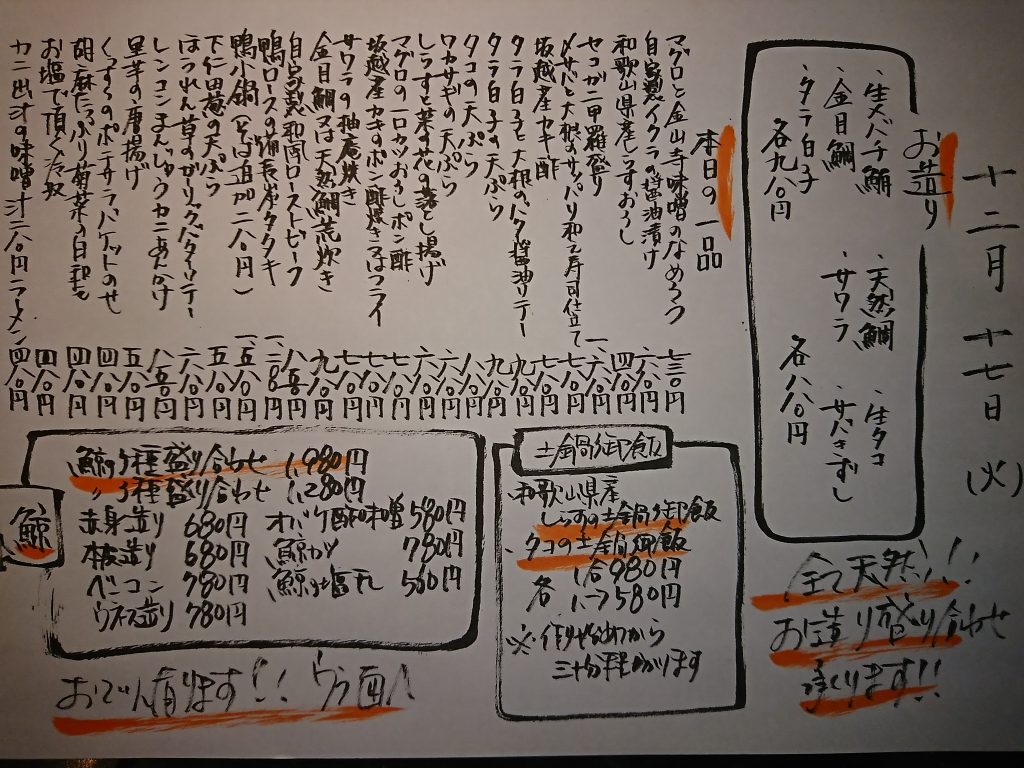 十二月十七日(火)
お造り
・生ズバチ鮪 ・天然鯛 ・生タコ
・金目鯛 ・サワラ ・サバきずし
・タラ白子
各九八〇円 各八八〇円
全て天然!!
お造り盛り合わせ
承ります!!
本日の一品
マグロと金山寺味噌のなめろう 七三〇円
自家製イクラの醤油漬け 六八〇円
和歌山県産しらすおろし 四八〇円
セコガニ甲羅盛り 一六八〇円
〆サバと大根のサッパリ和え寿司仕立て 七八〇円
坂越産カキ酢 七八〇円
タラ白子と大根のバタ醤油ソテー 九八〇円
タラ白子の天ぷら 九八〇円
タコの天ぷら 八八〇円
ワカサギの天ぷら 六八〇円
しらすと菜の花の落とし揚げ 六八〇円
マグロの一口カツおろしポン酢 七八〇円
坂越産カキのポン酢焼き又はフライ 七八〇円
サワラの柚庵焼き 七八〇円
金目鯛又は天然鯛荒炊き 九八〇円
自家製和風ローストビーフ 八五〇円
鴨ロースの備長炭タタキ 一二八〇円
鴨小鍋(そば追加二八〇円) 一五八〇円
下仁田葱の天ぷら 五八〇円
ほうれん草のガーリックバターソテー 六八〇円
レンコンまんじゅうカニあんかけ 八五〇円
里芋の唐揚げ 五八〇円
くんたまのポテサラバケットのせ 四八〇円
胡麻たっぷり菊菜の白和え 四八〇円
お塩で頂く冷奴 四八〇円
カニ出汁の味噌汁二八〇円ラーメン四八〇円
土鍋御飯
・和歌山県産
しらすの土鍋御飯
・タコの土鍋御飯
各 1合980円
1.5合1,580円
※作り始めてから
三十分程かかります
鯨
鯨5種盛り合わせ 1,980円
〃3種盛り合わせ 1,280円
赤身造り 680円 オバケ酢味噌 580円
本皮造り 680円 鯨カツ 780円
ベーコン 780円 鯨の塩干し 500円
ウネス造り 780円
おでん有ります!!